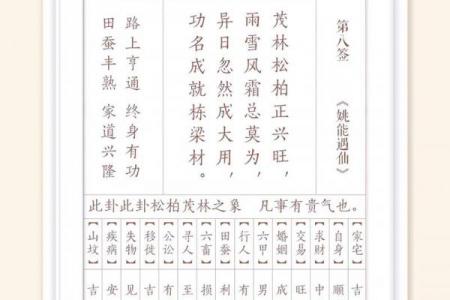 第八签 《姚能遇仙》
茂林松柏正兴旺，
雨雪风霜总莫为，
异日忽然成大用，
功名成就栋梁材。
路上亨通 终身有功
田蚕丰熟 家道兴隆
此卦此卦松柏茂林之象 凡事有贵气也。
【家宅】吉
【自身】顺
【求财】中
【交易】旺
【婚姻】成
【六甲】男
【行人】有
【田蚕】利
【六畜】损
【寻人】至
【公讼】有
【移徙】吉
【失物】见
【疾病】安
【山坟】吉